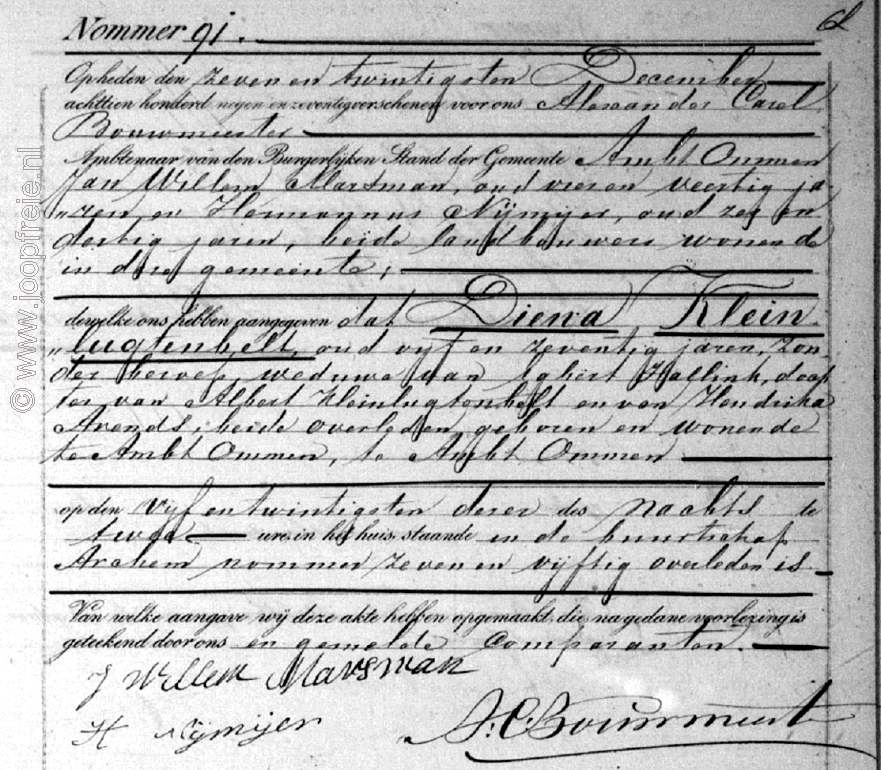 Nommer 91.
Op heden den zeven en twintigsten December
achttien honderd negen en zeventig verschenen voor ons Alexander Carel
Bouwmeester
Ambtenaar van den Burgerlijken Stand der Gemeente Ambt Ommen
Jan Willem Marsman, oud vier en veertig ja-
"ren, en Hermannus Nijmijer, oud zes en
dertig jaren, beide landbouwers wonende
in deze gemeente;
dewelke ons hebben aangegeven dat Diena Klein
"lugtenbelt, oud vijf en zeventig jaren, zon-
der beroep, weduwe van Egbert Hallink, doch
ter van Albert Kleinlugtenbelt en van Hendrika
Arends, beide overleden, geboren en wonende
te Ambt Ommen, te Ambt Ommen
op den vijf en twintigsten dezer des nachts te
twee ure, in het huis, staande in de buurtschap
Archem nommer zeven en vijftig overleden is.
Van welke aangave wij deze akte hebben opgemaakt, die na gedane voorlezing is
geteekend door ons en gemelde comparanten.
J Willem Marsman
H Nijmijer
A.C. Bouwmeest
© www.joopfreie.nl